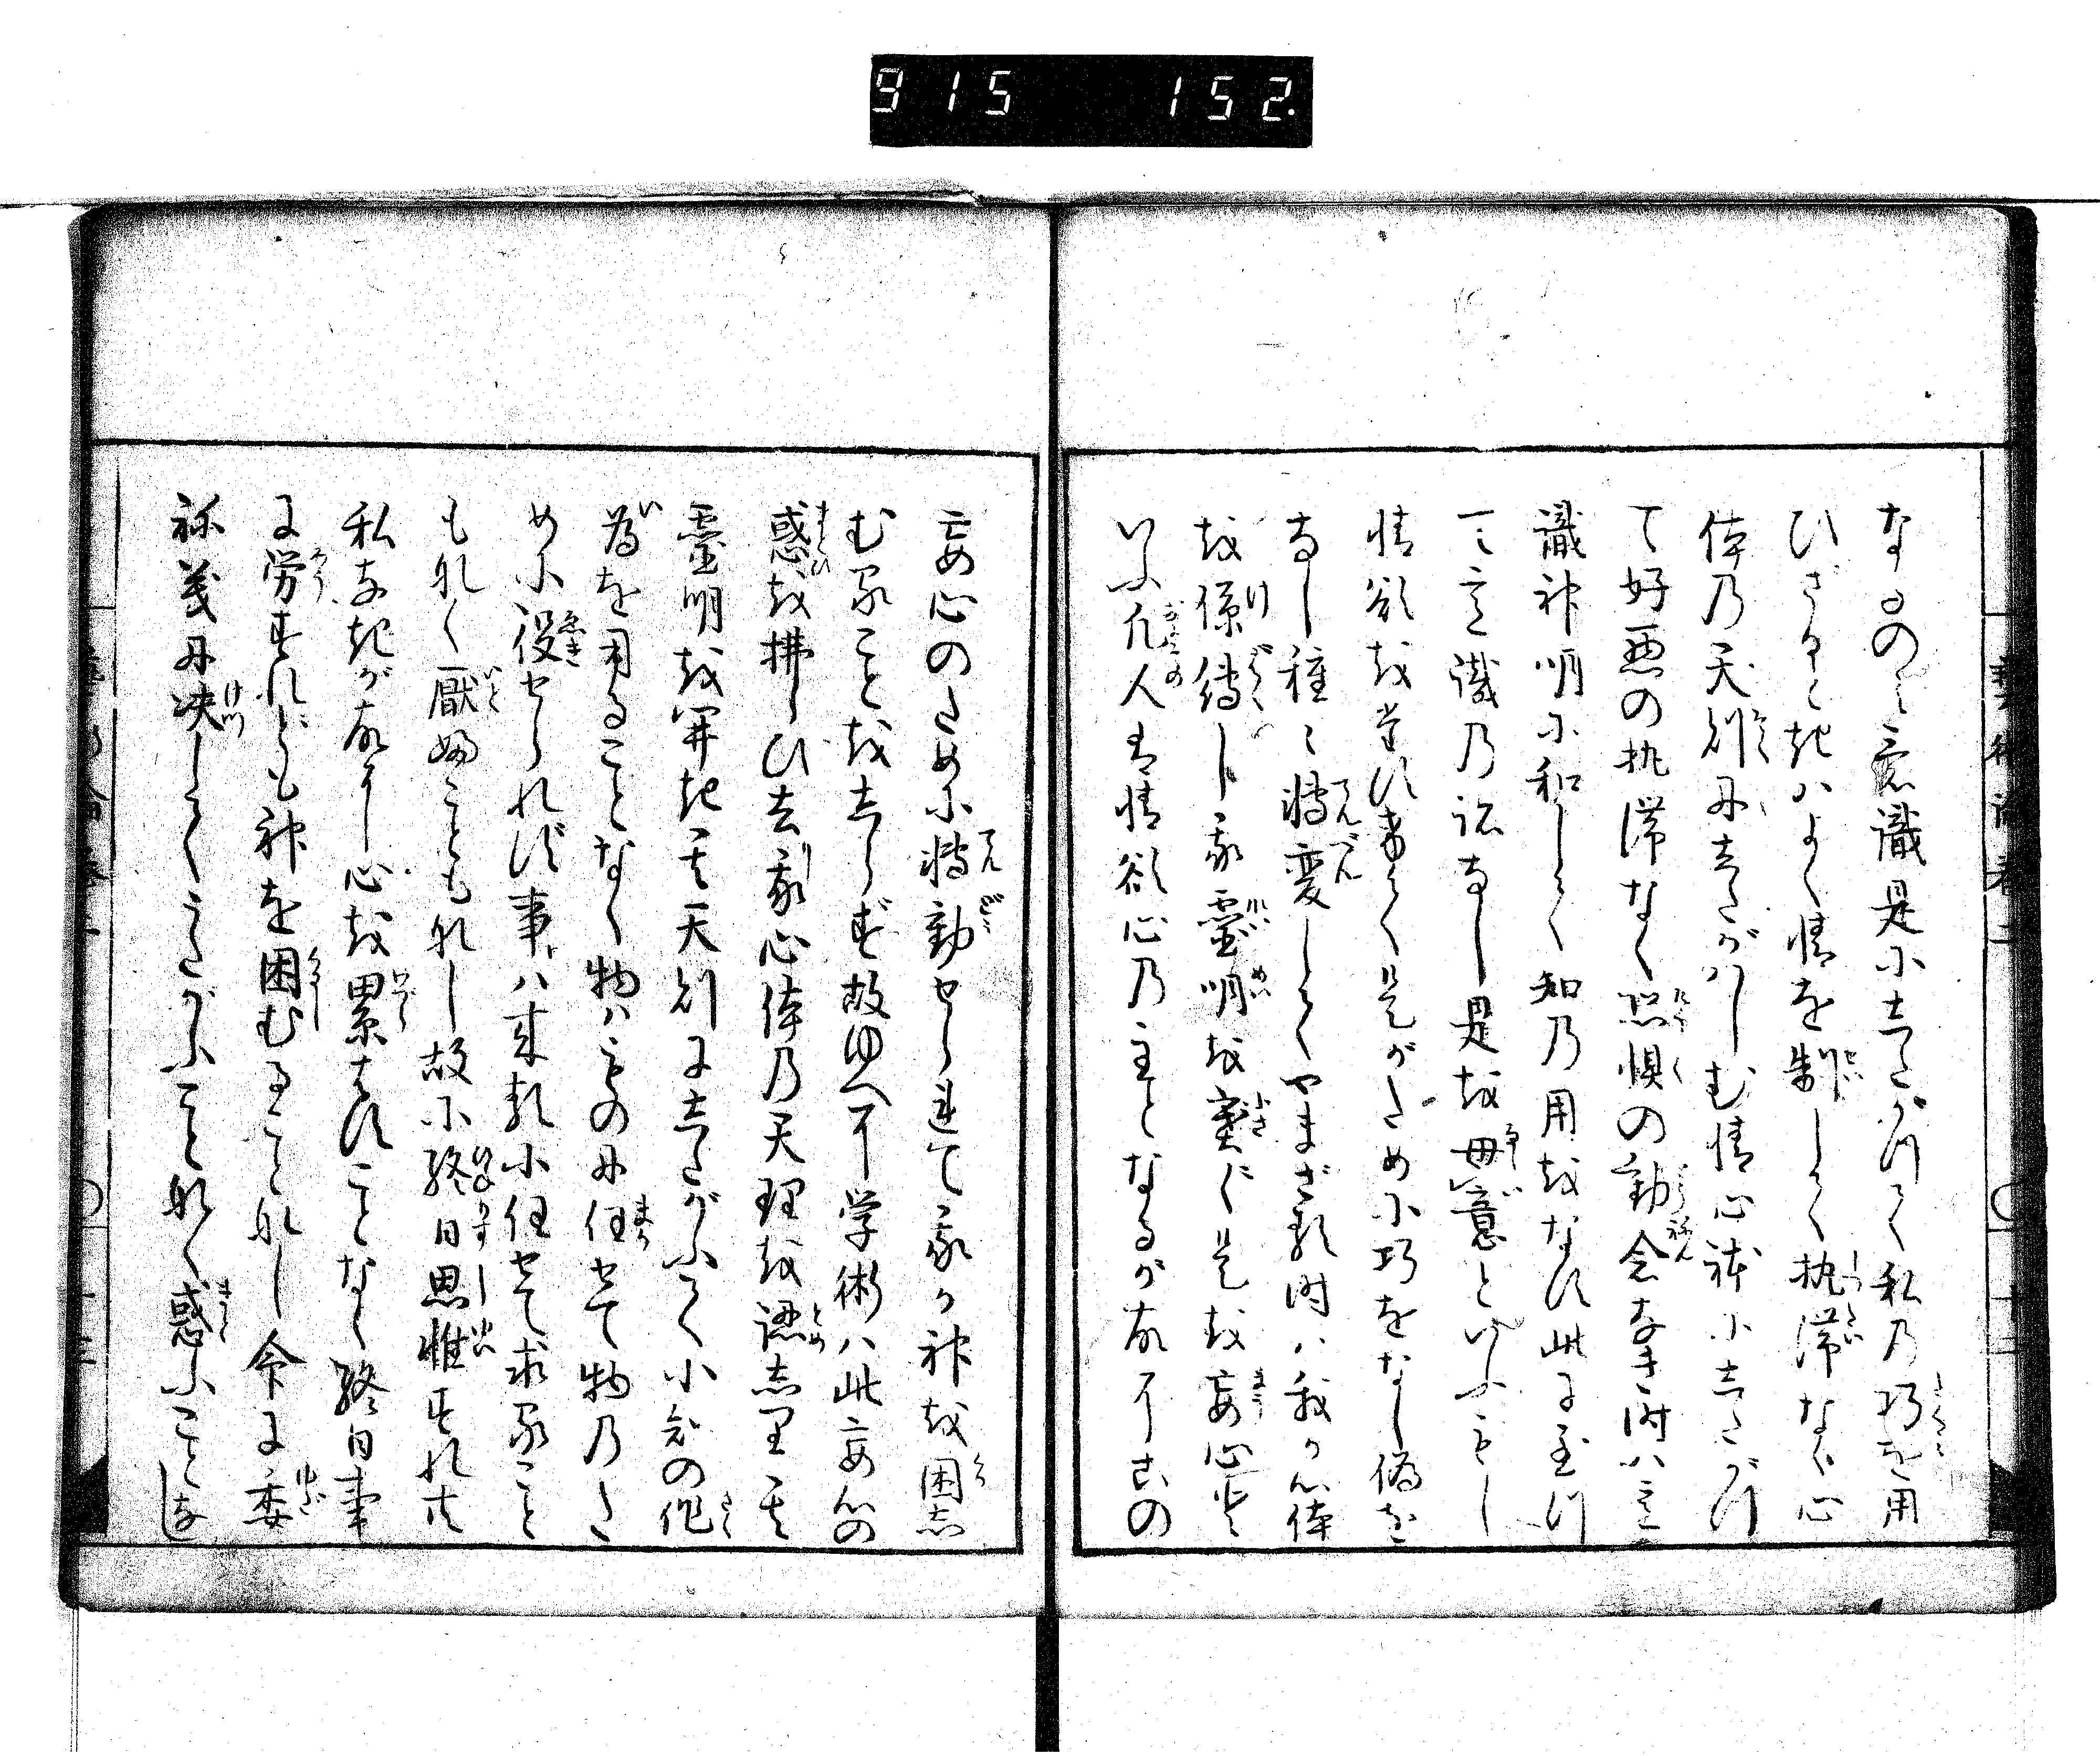 915 152.
なるのミ意識是にしたがつて私乃巧を用
ひざるとき ハよく情を制して執滞なく心
体乃天則にしたがハしむ情心体にしたがつ
て好悪の執滞なく恐惧の動念なき時ハ意
識神明に和して知乃用をなす此に至つ
て意識乃跡なし是を毋意といふもし
情欲をなすにまかせて是がために巧をなし偽を
なし種々転変してやまざる時ハ我が心体
を係縛し我霊明を塞ぐ是を妄心と
いふ凡人は情欲心乃主となるが故にこの
妄心のために転動せられて我が神を困し
むることをしらず故ゆへに学術ハ此妄心の
惑を払ひ去我心体乃天理を認しりて其
霊明を開き其天則にしたがふて小知の作
為を用ることなく物ハものに任せて物乃た
めに役せられず事ハ来るに任せて求ること
もなく厭ふこともなし故に終日思惟すれ共
私なきが故に心を累はすことなく終日事
に労すれども神を困むることなし命に委
ね義に決してうたがふことなく惑ふことな